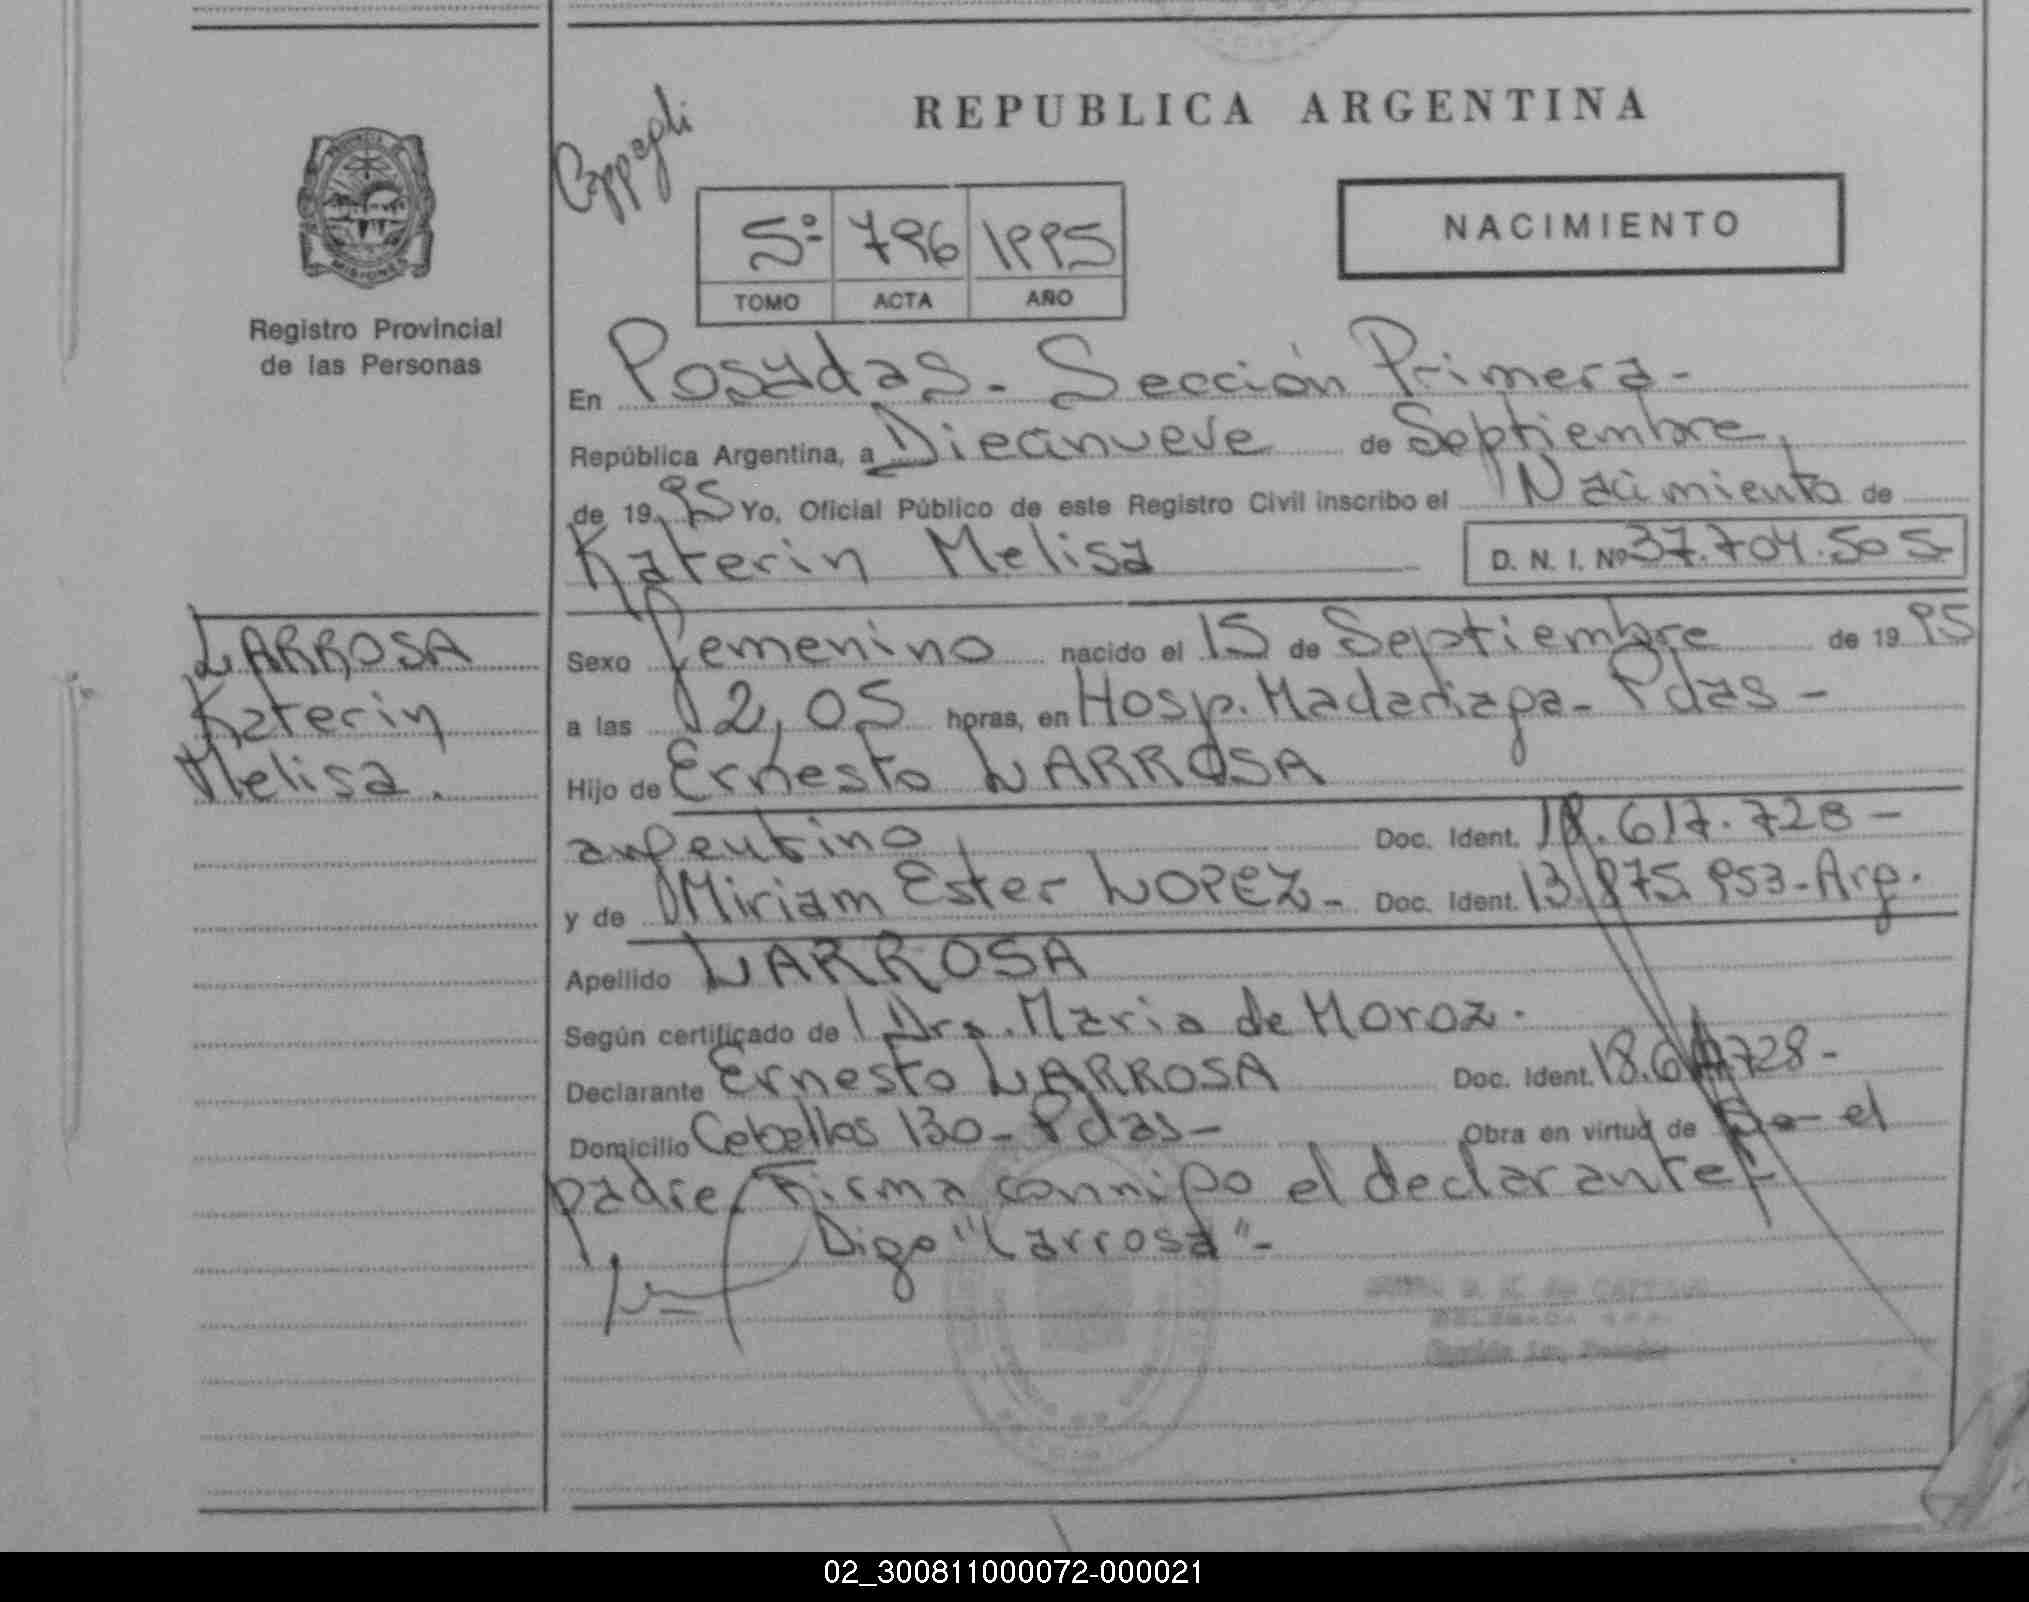 REPUBLICA ARGENTINA
NACIMIENTO
5º 796 1995
TOMO ACTA AÑO
Registro Provincial
de las Personas
En Posadas - Sección Primera -
República Argentina, a Diecinueve de Septiembre,
de 1995 Yo, Oficial Público de este Registro Civil inscribo el Nacimiento de
Katerin Melisa D. N. I. Nº 37.704.505
LARROSA
Katerin
Melisa.
Sexo femenino nacido el 15 de Septiembre de 1995
a las 12,05 horas, en Hosp. Madariaga - Pdas -
Hijo de Ernesto LARROSA
argentino Doc. Ident. 18.617.728 -
y de Miriam Ester LOPEZ - Doc. Ident. 13.875.953 - Arg.
Apellido LARROSA
Según certificado de Dra. Maria de Moroz.
Declarante Ernesto LARROSA Doc. Ident. 18.617.728 -
Domicilio Ceballos 130 - Pdas - Obra en virtud de el
padre Firma conmigo el declarante
Digo "Larrosa" -
02_300811000072-000021